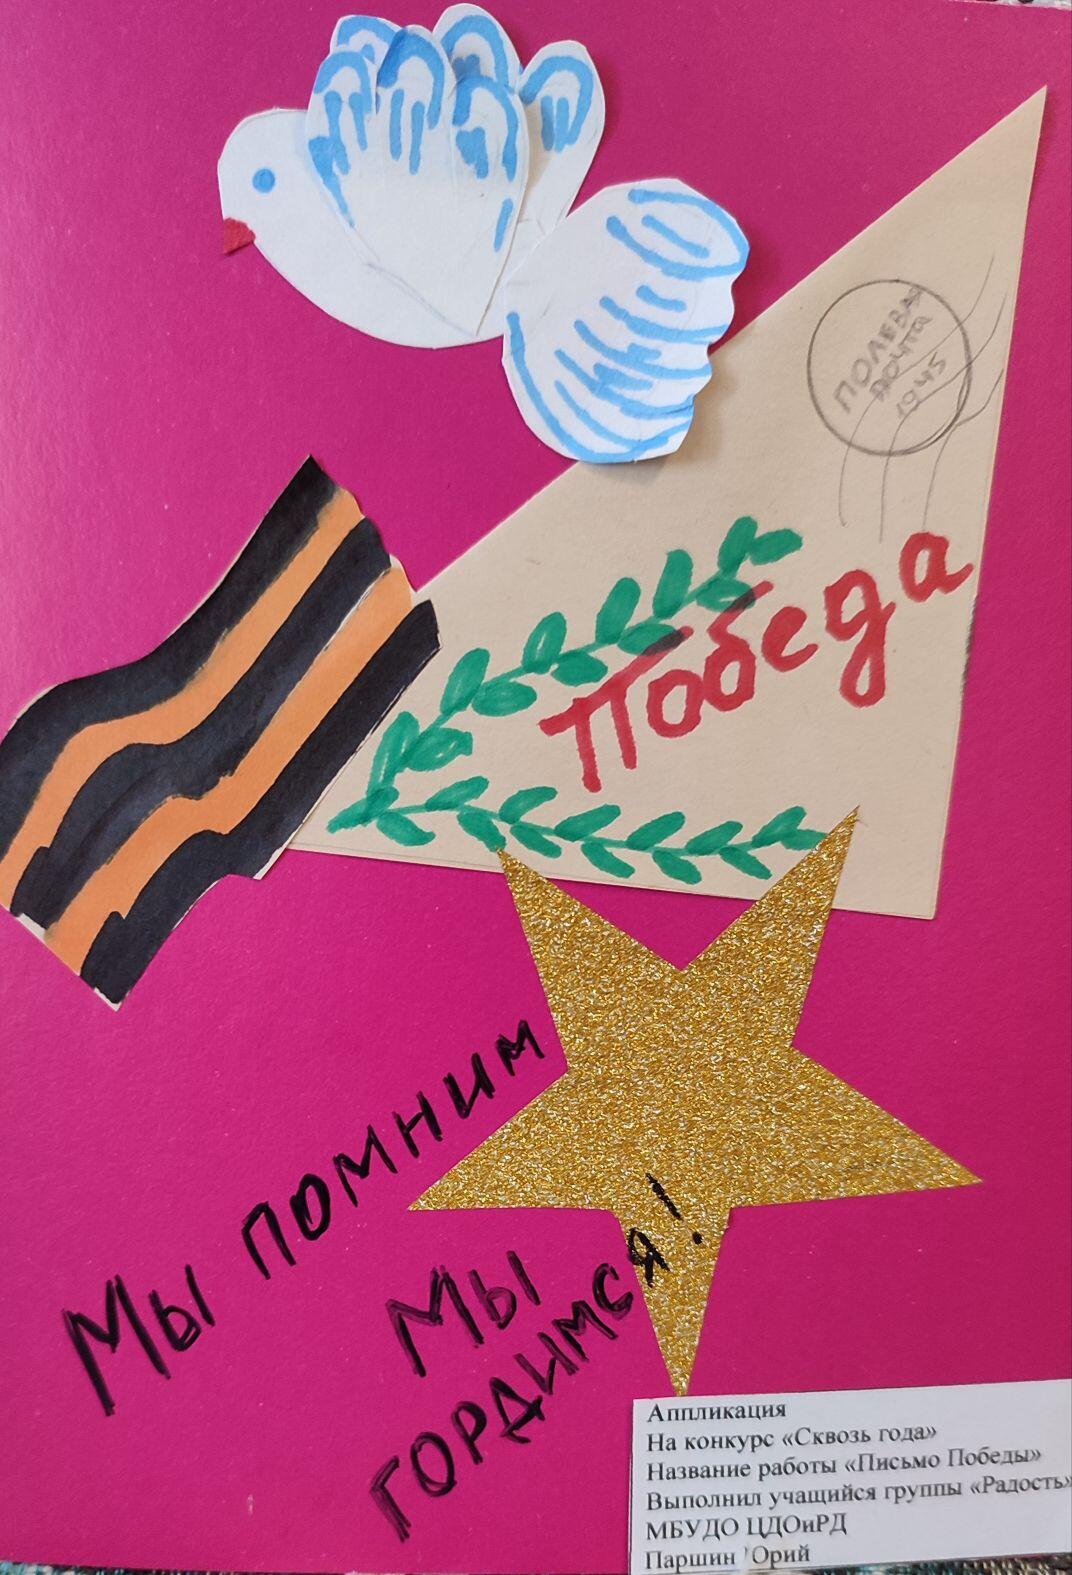 ПОЛЕВАЯ
ПОЧТА
1945
Победа
Мы помним
Мы
гордимся!
Аппликация
На конкурс «Сквозь года»
Название работы «Письмо Победы»
Выполнил учащийся группы «Радость»
МБУДО ЦДОиРД
Паршин Юрий